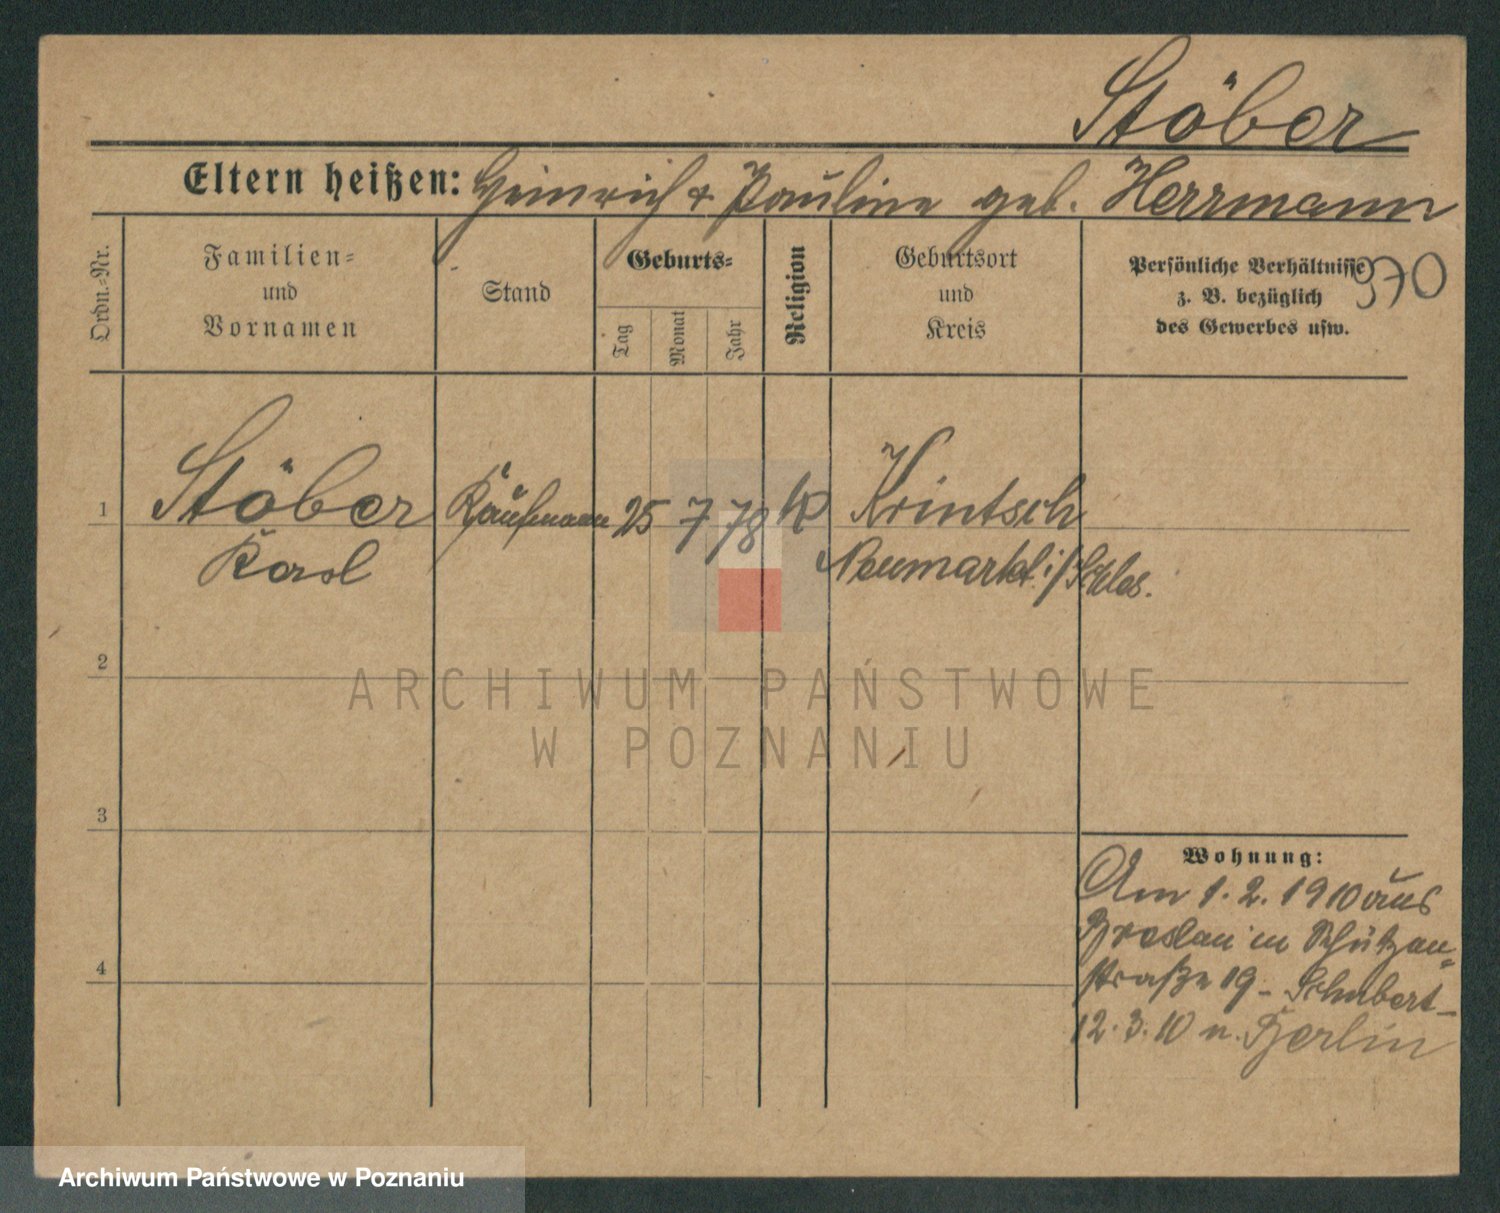 Stöber
Eltern heißen: Heinrich & Pauline geb. Herrmann
970
Ordn.-Nr.
Familien-
und
Vornamen
Stand
Geburts-
Tag
Monat
Jahr
Religion
Geburtsort
und
Kreis
Persönliche Verhältnisse
z. B. bezüglich
des Gewerbes usw.
1
Stöber Kaufmann 25 7 78 k Krintsch
Karl Neumarkt i/Schles.
2
ARCHIWUM PAŃSTWOWE
W POZNANIU
3
Wohnung:
Am 1.2.1910 aus
Breslau in Schützen-
straße 19 - Schubert -
12.3.10 n. Berlin
4
Archiwum Państwowe w Poznaniu